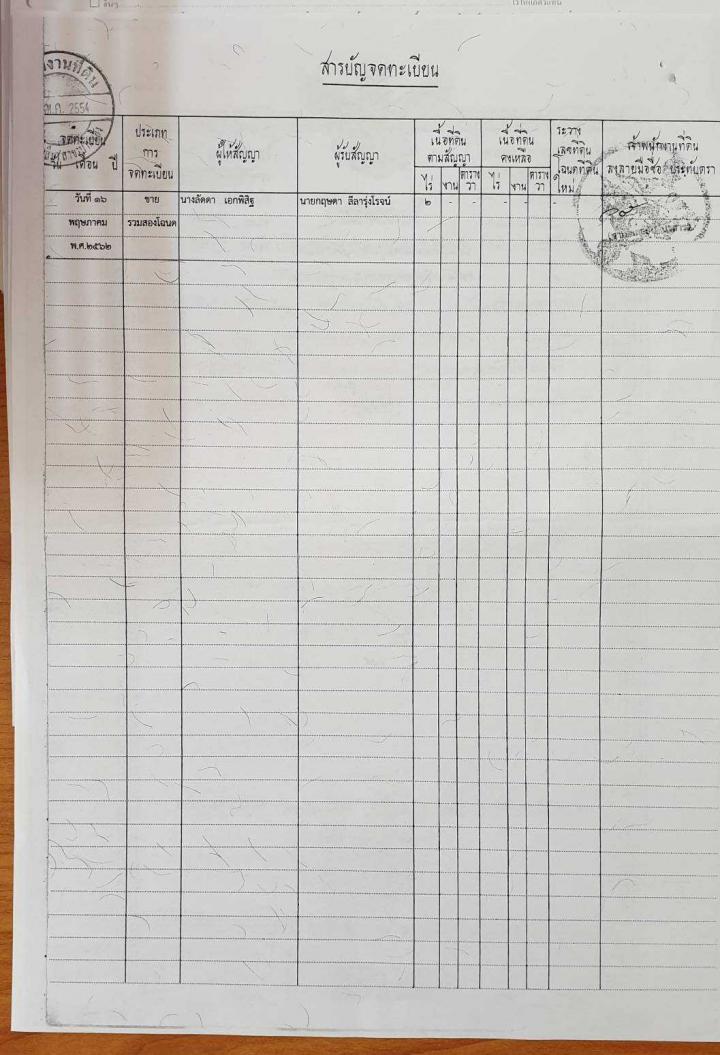 สารบัญจดทะเบียน
งานที่ดิน
2554
จดทะเบียน
วัน เดือน ปี
ประเภท
การ
จดทะเบียน
ผู้ให้สัญญา
ผู้รับสัญญา
เนื้อที่ดิน
ตามสัญญา
ไร่ งาน ตาราง
วา
เนื้อที่ดิน
คงเหลือ
ไร่ งาน ตาราง
วา
ระวาง
เลขที่ดิน
โฉนดที่ดิน
ใหม่
เจ้าพนักงานที่ดิน
ลงลายมือชื่อ ประทับตรา
วันที่ ๑๖ ขาย นางลัดดา เอกพิสิฐ นายกฤษดา ลีลารุ่งโรจน์ ๒ - - - - - -
พฤษภาคม รวมสองโฉนด
พ.ศ.๒๕๖๒